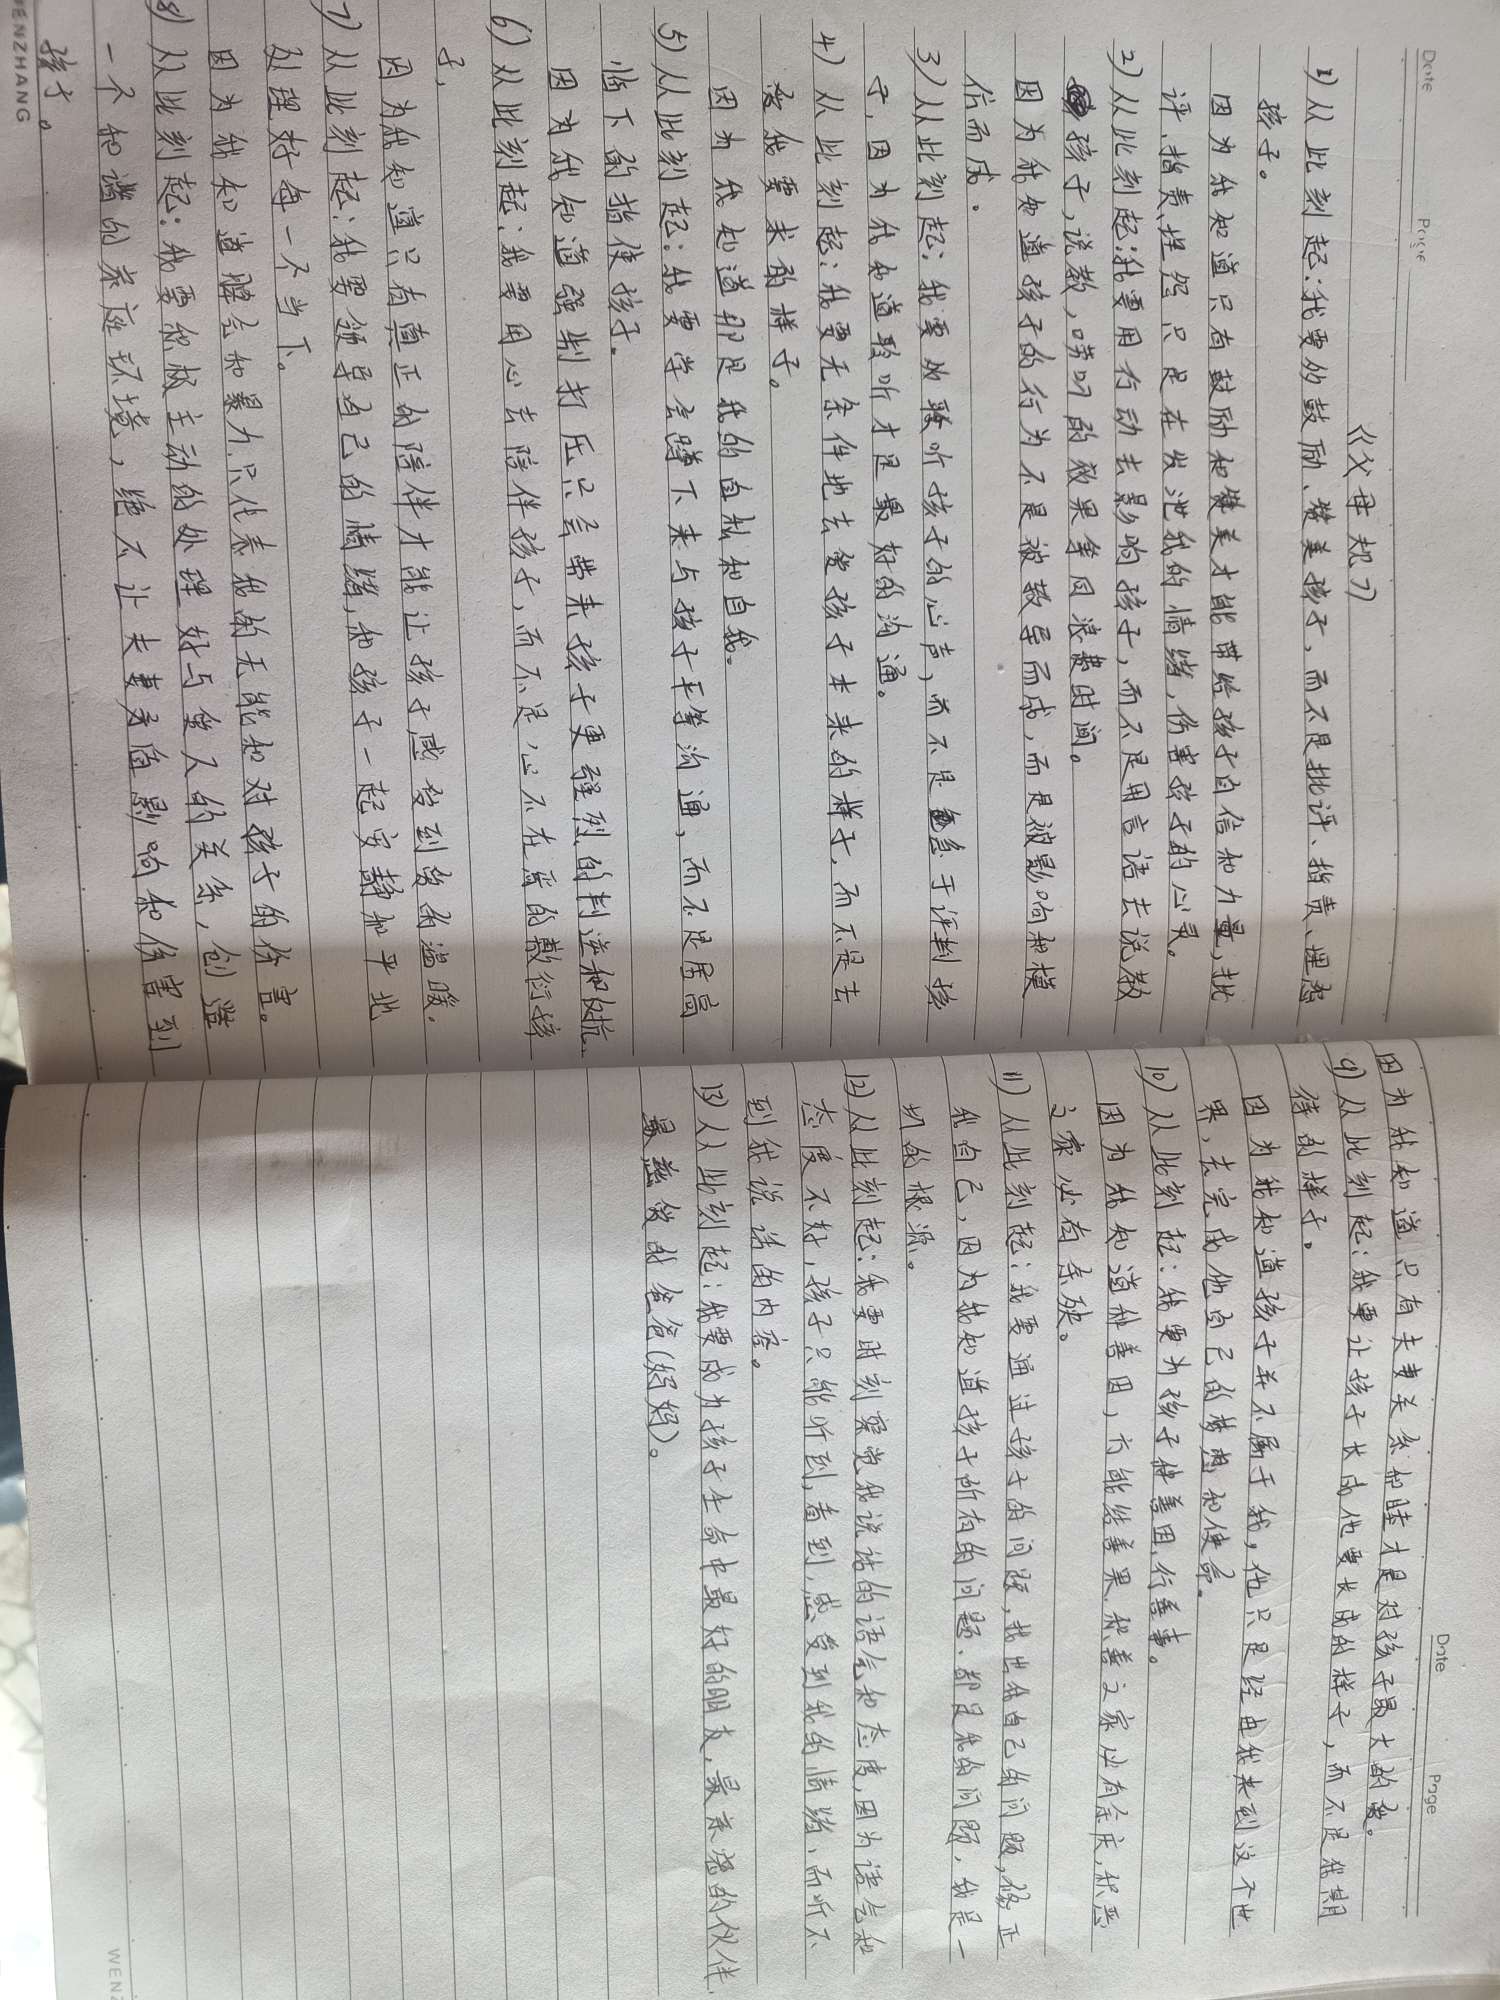 Date
Page
《父母规》
1)从此刻起:我要的鼓励、赞美孩子,而不是批评、指责、埋怨
孩子。
因为我知道只有鼓励和赞美才能带给孩子自信和力量,批
评、指责、埋怨只是在发泄我的情绪,伤害孩子的心灵。
2)从此刻起:我要用行动去影响孩子,而不是用言语去说教
孩子,说教,唠叨的效果等同浪费时间。
因为我知道孩子的行为不是被教导而成,而是被影响和模
仿而成。
3)从此刻起:我要聆听孩子的心声,而不是急于评判孩
子,因为我知道聆听才是最好的沟通。
4)从此刻起:我要无条件地去爱孩子本来的样子,而不是去
爱我要求的样子。
因为我知道那是我的自私和自我。
5)从此刻起:我要学会蹲下来与孩子平等沟通,而不是居高
临下的指使孩子。
因为我知道强制打压只会带来孩子更强烈的判逆和反抗。
6)从此刻起:我要用心去陪伴孩子,而不是,心不在焉的敷衍孩
子,
因为我知道只有真正的陪伴才能让孩子感受到爱和温暖.
7)从此刻起:我要领导自己的情绪,和孩子一起安静和平地
处理好每一个当下。
因为我知道脾气和暴力只代表我的无能和对孩子的伤害。
8)从此刻起:我要积极主动的处理好与爱人的关系,创造
一个和谐的家庭环境,绝不让夫妻矛盾影响和伤害到
孩子。
WENZHANG
Date
Page
因为我知道只有夫妻关系和睦才是对孩子最大的爱。
9)从此刻起:我要让孩子长成他要长成的样子,而不是我期
待的样子。
因为我知道孩子并不属于我,他只是经由我来到这个世
界,去完成他自己的梦想和使命。
10)从此刻起:我要为孩子种善因,行善事。
因为我知道种善因,方能结善果,积善之家必有余庆,积恶
之家必有余殃。
11)从此刻起:我要通过孩子的问题,找出我自己的问题,修正
我自己,因为我知道孩子所有的问题.都是我的问题,我是一
切的根源。
12)从此刻起:我要时刻察觉我说话的语气和态度,因为语气和
态度不好,孩子只能听到,看到,感受到我的情绪、而听不
到我说话的内容。
13)从此刻起:我要成为孩子生命中最好的朋友,最亲密的伙伴,
最慈爱的爸爸(妈妈)。